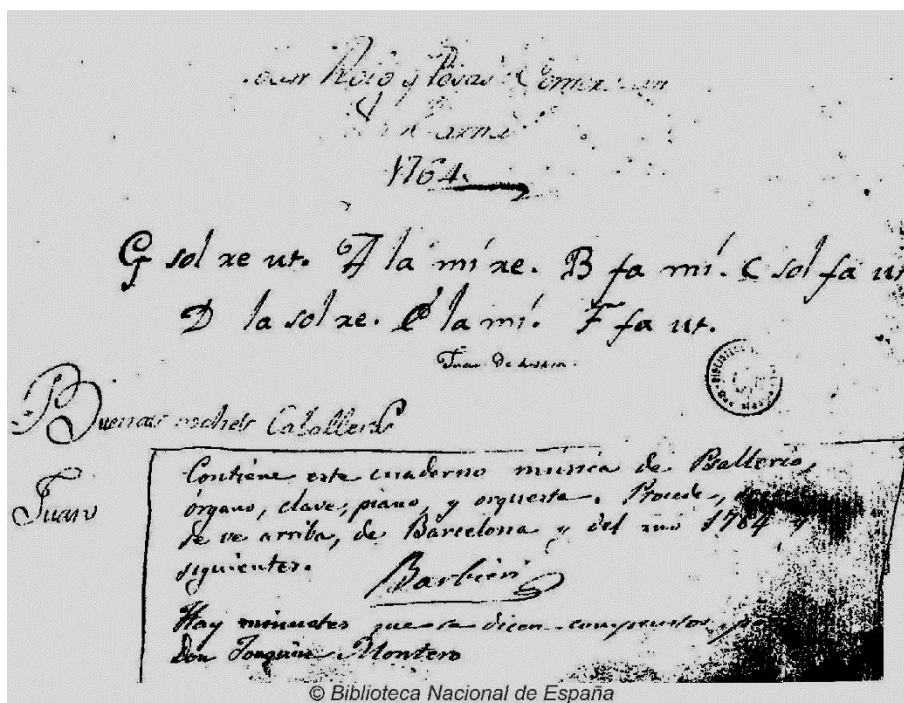 Roig y Posas Comer
1764.
G sol re ut. A la mi re. B fa mí. C sol fa ut
D la sol re. E la mí. F fa ut.
Juan De
BIBLIOTECA
Buenas noches Caballero
Juan
Contiene este cuaderno música de Balterio,
órgano, clave, piano, y orquesta. Procede,
se ve arriba, de Barcelona y del año 1764 y
siguientes.
Barbieri
Hay minuetes que se dicen compuestos po
Don Joaquin Montero
© Biblioteca Nacional de España